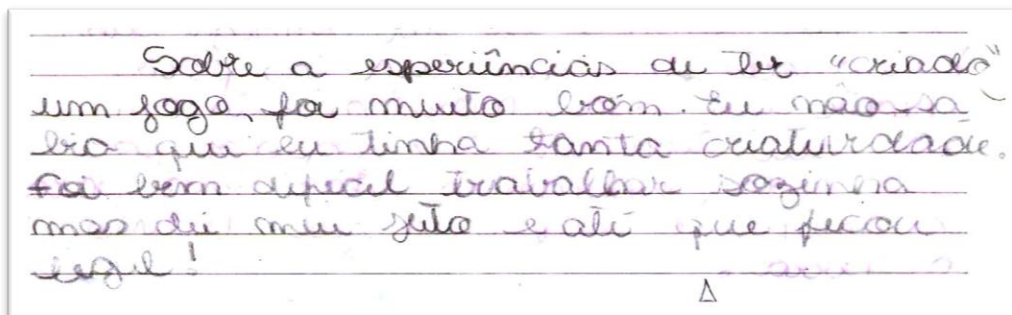 Sobre a esperiências de ter "criado"
um jogo, foi muito bom. Eu não sa
bia que eu tinha tanta criatividade.
Foi bem dificil trabalhar sozinha
mas dei meu jeito e até que ficou
legal!